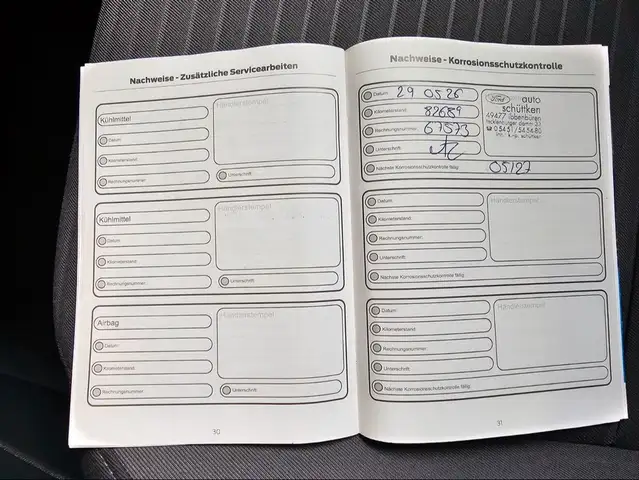 Nachweise - Zusätzliche Servicearbeiten
Kühlmittel
Händlerstempel
Datum
Kilometerstand
Rechnungsnummer
Unterschrift
Kühlmittel
Händlerstempel
Datum
Kilometerstand
Rechnungsnummer
Unterschrift
Airbag
Händlerstempel
Datum
Kilometerstand
Rechnungsnummer
Unterschrift
30
Nachweise - Korrosionsschutzkontrolle
Datum 29 05 26
Kilometerstand 82689
Rechnungsnummer 67573
Unterschrift
Ford auto
schüttken
49477 Ibbenbüren
Tecklenburger Damm 33
☎ 05451/545680
Inh. Ing. Schüttken
Nächste Korrosionsschutzkontrolle fällig: 05/27
Händlerstempel
Datum
Kilometerstand
Rechnungsnummer
Unterschrift
Nächste Korrosionsschutzkontrolle fällig
Händlerstempel
Datum
Kilometerstand
Rechnungsnummer
Unterschrift
Nächste Korrosionsschutzkontrolle fällig
31